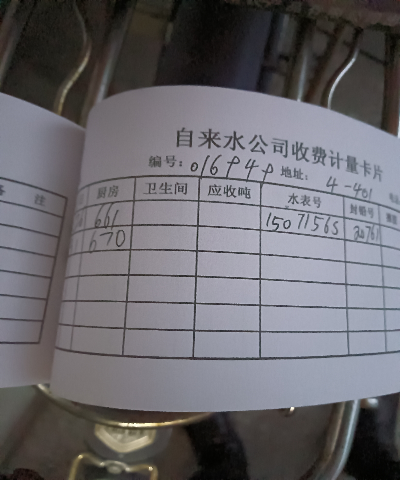 自来水公司收费计量卡片
编号: 016949 地址: 4-401
备 注
厨房 卫生间 应收吨 水表号 封铅号
661 15071565 30761
670